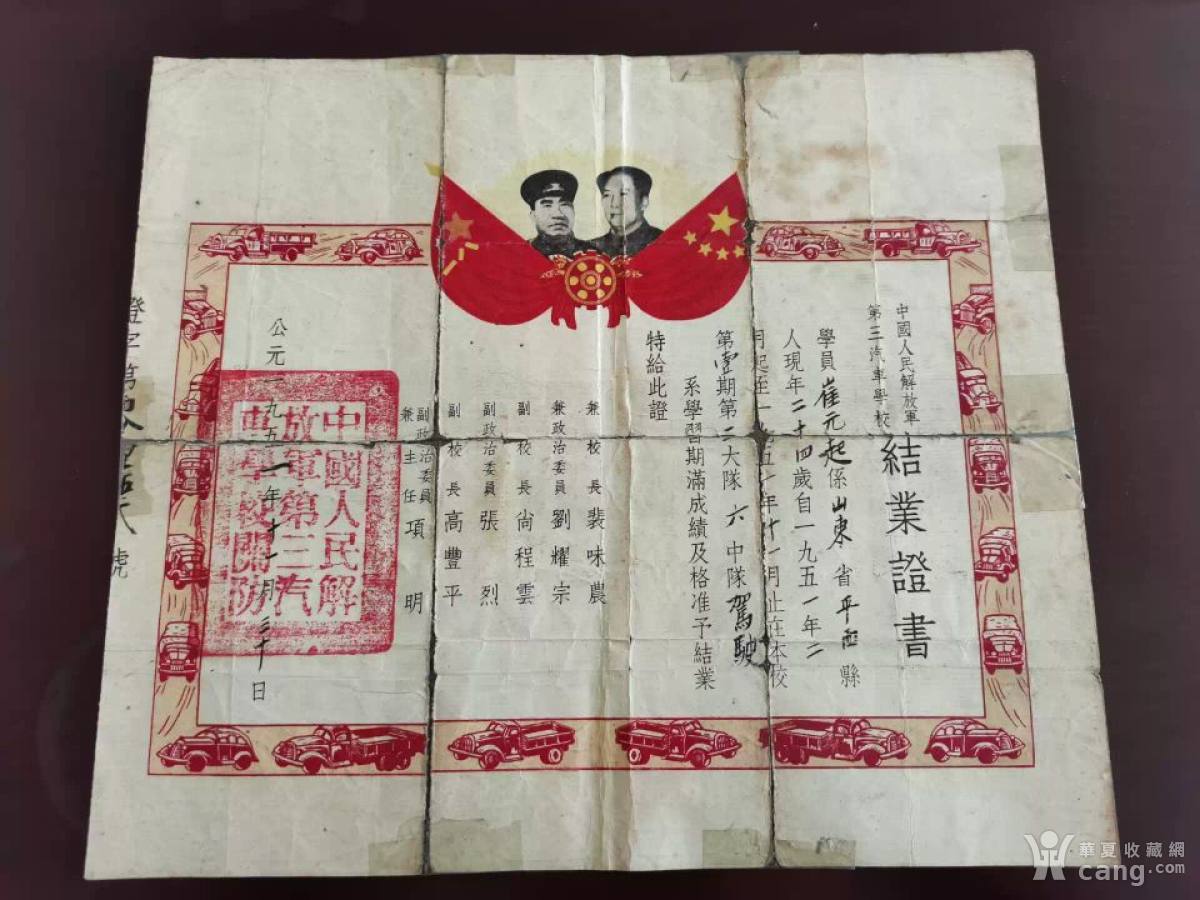 中國人民解放軍
第三汽車學校
結業證書
學員崔元起係山東省平西縣
人現年二十四歲自一九五一年二
月起至一九五一年十一月止在本校
第壹期第二大隊六中隊駕駛
系學習期滿成績及格准予結業
特給此證
兼校長裴味農
兼政治委員劉耀宗
副校長尙程雲
副政治委員張烈
副校長高豐平
副政治委員
兼主任項明
公元一九五一年十一月三十日
中國人民解
放軍第三汽
車學校關防
證字第
號
華夏收藏網
cang.com